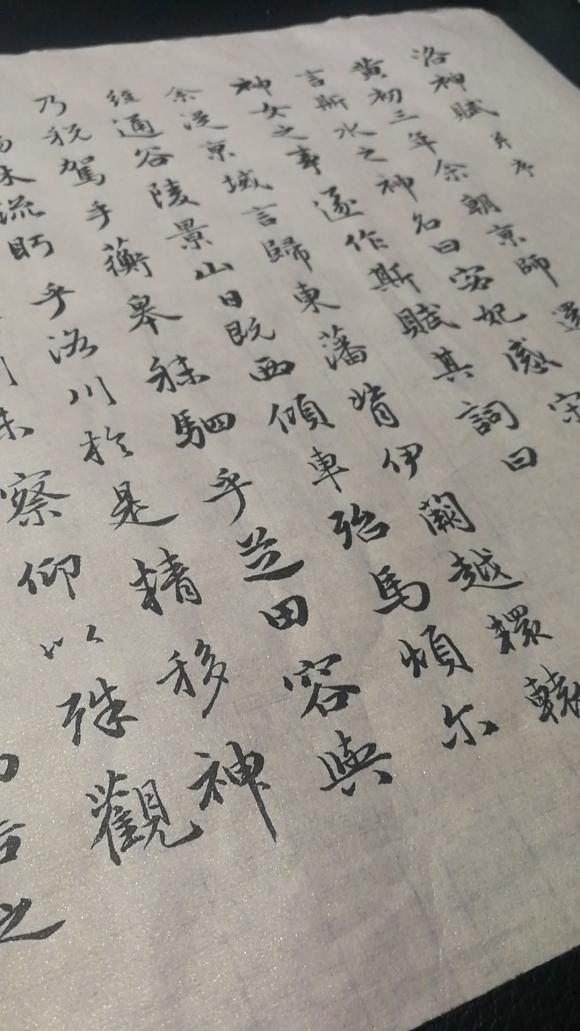 洛神賦 并序
黄初三年余朝京師還
言斯水之神名曰宓妃感宋
神女之事遂作斯賦其詞曰
余従京域言歸東藩背伊闕越轘轅
經通谷陵景山日既西傾車殆馬煩尔
乃税駕乎蘅皋秣駟乎芝田容與
林流眄乎洛川於是精移神
未察仰以殊觀
之